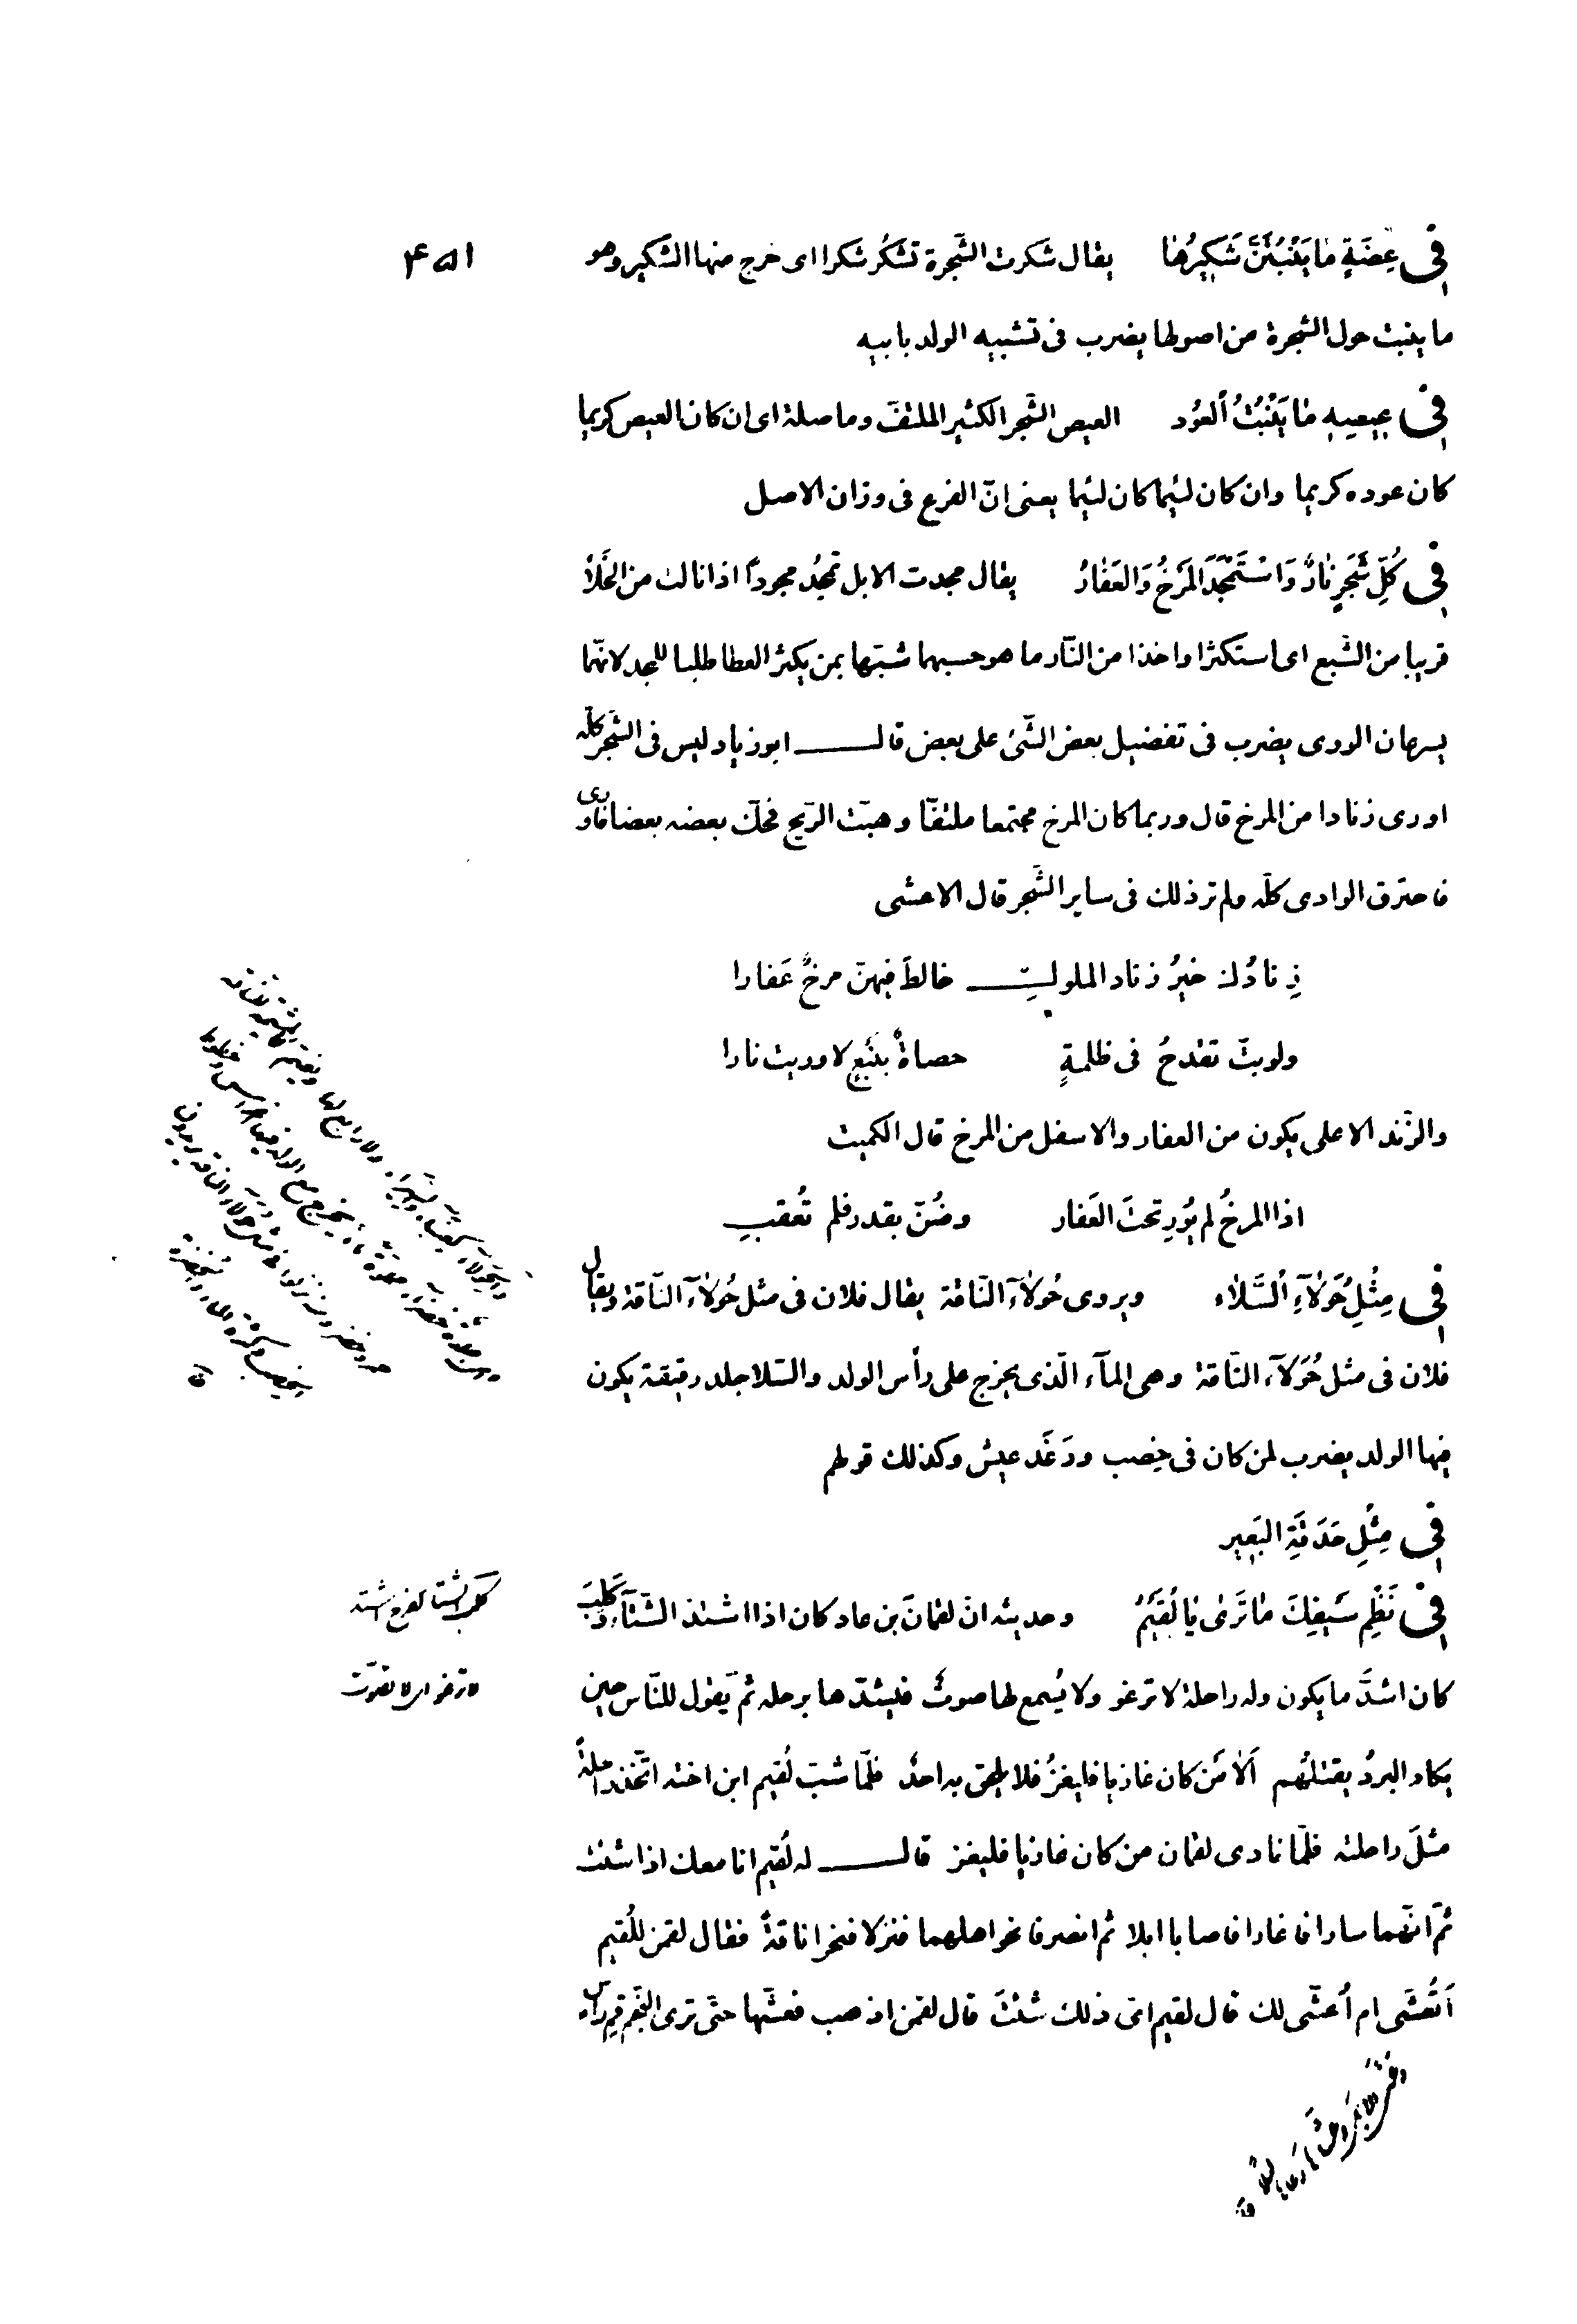 ۴۵۱
فى عِضَةٍ مٰا يَنْبُتَنَّ شَكِيرُهٰا يقال شكرت الشّجرة تشكُر شكرا اى خرج منها الشكير وهو
ما ينبت حول الشجرة من اصولها يضرب فى تشبيه الولد بابيه
فى عِيصِهِ مٰا يَنْبُتُ اُلعُود العيص الشّجر الكثير الملتفّ وما صلة اى ان كان العيص كريما
كان عوده كريما وان كان لئيما كان لئيما يعنى انّ الفرع فى وزان الاصل
فى كُلِّ شَجَرٍ نٰارٌ وَاسْتَمْجَدَ المَرْخُ وَالعَفٰارُ يقال مجدت الابل تمجُد مجوداً اذا نالت من الخَلاَ
قريبا من الشّبع اى استكثرا واخذا من النّار ما هو حسبهما شبّها بمن يكثر العطا طلبا للمجد لانّهما
يسرعان الورى يضرب فى تفضيل بعض الشّئ على بعض قال ابو زياد ليس فى الشّجر كلّه
اورى زنادا من المرخ قال وربما كان المرخ مجتمعا ملتفّا وهبّت الرّيح فحكّ بعضه بعضا فاورى
فاحترق الوادى كلّه ولم تر ذلك فى ساير الشّجر قال الاعشى
زِنادُك خيرُ زناد الملوكِ خالطَ فيهنّ مرخٌ عَفارا
ولو بتّ تقدحُ فى ظلمةٍ حصاةً بنَبْعٍ لاوريت نارا
والزّند الاعلى يكون من العفار والاسفل من المرخ قال الكميت
اذا المرخُ لم يُورِ تحتَ العَفار وضُنّ بقدر فلم تُعقبِ
فى مِثْلِ حُوَلاٰءِ اُلسَّلاٰء ويروى حُولاٰء النّاقة يقال فلان فى مثل حُولاٰء النّاقة ويقال
فلان فى مثل حُوَلآء النّاقة وهى المآء الّذى يخرج على رأس الولد والسّلا جلد رقيقة يكون
فيها الولد يضرب لمن كان فى خِصب ورَغَد عيش وكذلك قولهم
فى مِثْلِ حَدَقَةِ البَعِير
فى نَظْمِ سَيْفِكَ مٰا تَرٰى يٰا لُقَيْمُ وحديثه انّ لقمانَ بن عاد كان اذا اشتدّ الشّتآء وكَلِبَ
كان اشدَّ ما يكون وله راحلة لا ترغو ولا يُسمع لها صوتٌ فيشدّها برحله ثمّ يقول للنّاس حين
يكاد البردُ يقتلُهم اَلاٰ مَن كان غازيا فليغزُ فلا يلحق به احدٌ فلمّا شبّ لُقيم ابن اخته اتّخذ راحلةً
مثلَ راحلته فلمّا نادى لقمان من كان غازيا فليغز قال له لُقيم انا معك اذا شئت
ثمّ انّهما سارا فاغارا فاصابا ابلا ثم انصرفا نحو اهلهما فنزلا فنحرا ناقةً فقال لقمن للُقيم
اَتُعَشّى ام اُعشّى لك قال لقيم اىّ ذلك شئتَ قال لقمن اذهب فعشّها حتّى ترى النّجم قِمّ رأس
كلب الشتا كفرح اشتد
لا ترغو اى لا تصوّت